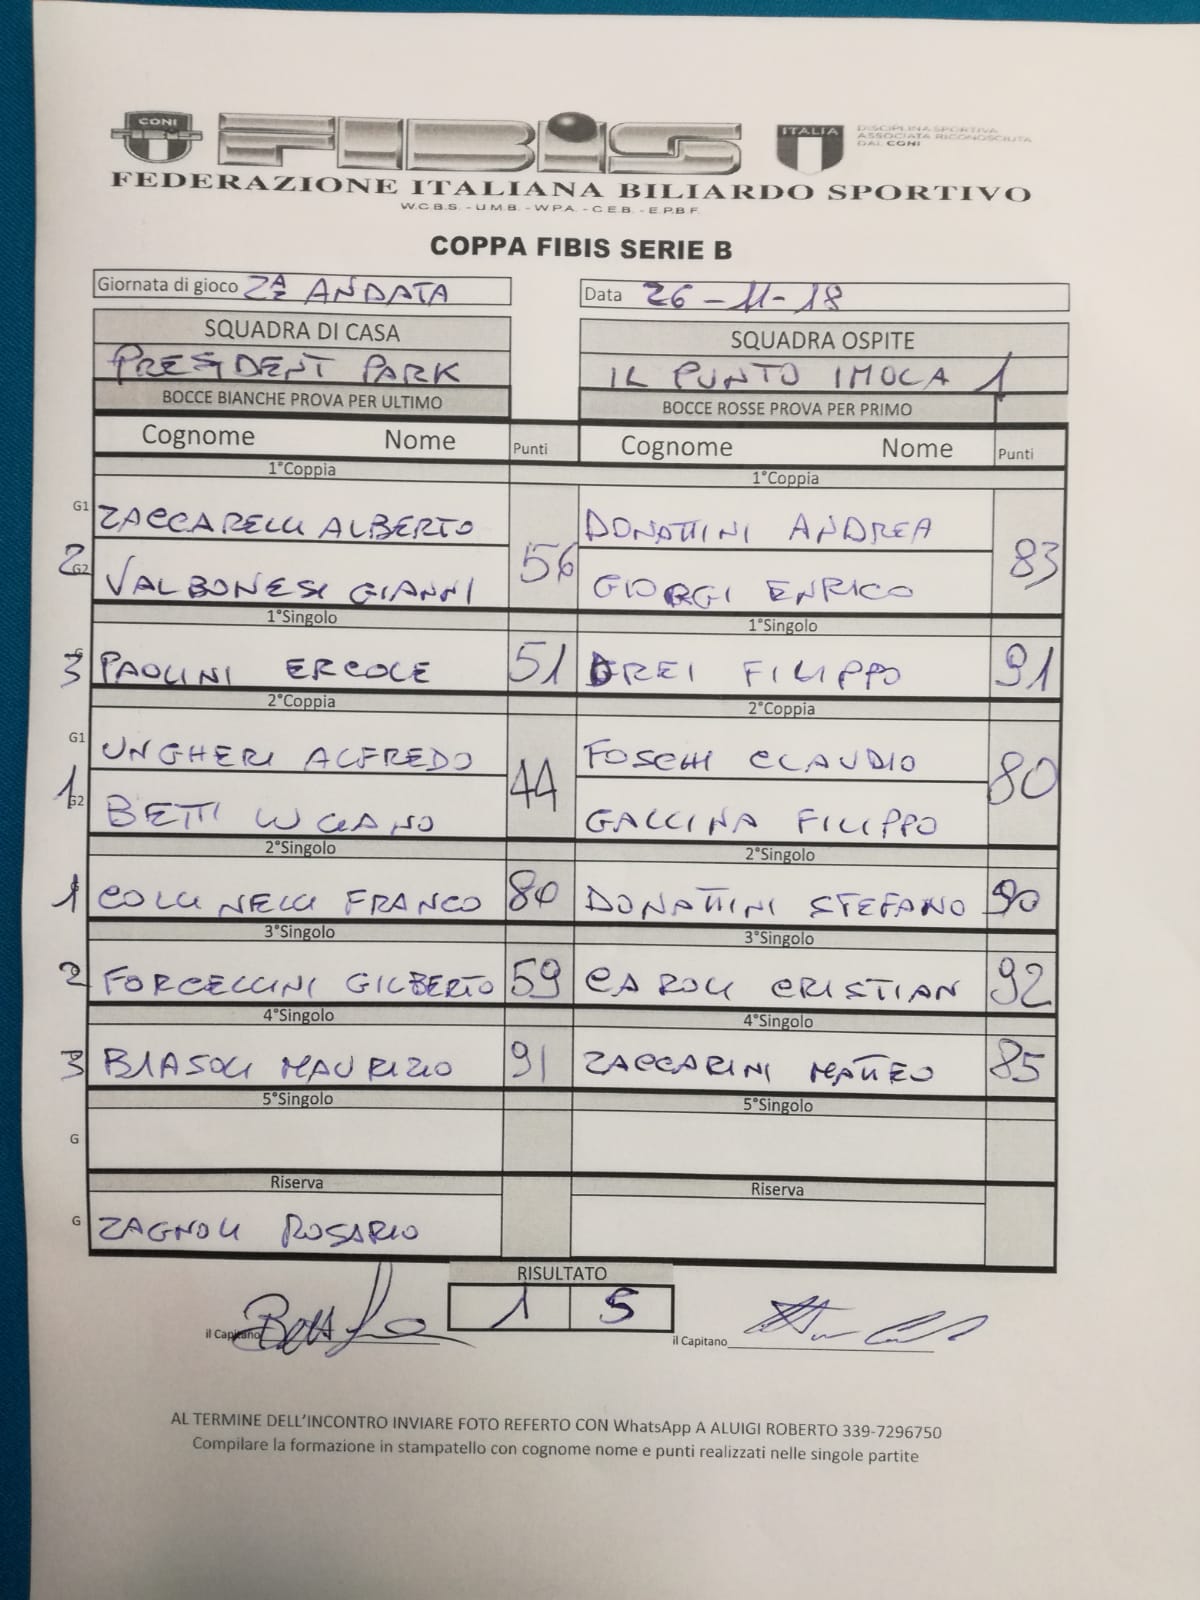 CONI FIBIS ITALIA DISCIPLINA SPORTIVA
ASSOCIATA RICONOSCIUTA
DAL CONI
FEDERAZIONE ITALIANA BILIARDO SPORTIVO
W.C.B.S. - U.M.B. - W.P.A. - C.E.B. - E.P.B.F.
COPPA FIBIS SERIE B
Giornata di gioco 2ª ANDATA Data 26-11-18
SQUADRA DI CASA SQUADRA OSPITE
PRESIDENT PARK IL PUNTO IMOLA 1
BOCCE BIANCHE PROVA PER ULTIMO BOCCE ROSSE PROVA PER PRIMO
Cognome Nome Punti Cognome Nome Punti
1°Coppia 1°Coppia
G1 ZACCARELLI ALBERTO DONATTINI ANDREA
2 G2 VALBONESI GIANNI 56 GIORGI ENRICO 83
1°Singolo 1°Singolo
3 G PAOLINI ERCOLE 51 DREI FILIPPO 91
2°Coppia 2°Coppia
G1 UNGHERI ALFREDO FOSCHI CLAUDIO
1 G2 BETTI LUCIANO 44 GALLINA FILIPPO 80
2°Singolo 2°Singolo
1 G COLLINELLI FRANCO 80 DONATTINI STEFANO 90
3°Singolo 3°Singolo
2 FORCELLINI GILBERTO 59 CAROLI CRISTIAN 92
4°Singolo 4°Singolo
3 BIASOLI MAURIZIO 91 ZACCARINI MATTEO 85
5°Singolo 5°Singolo
G
Riserva Riserva
G ZAGNOLI ROSARIO
RISULTATO
1 5
il Capitano il Capitano
AL TERMINE DELL'INCONTRO INVIARE FOTO REFERTO CON WhatsApp A ALUIGI ROBERTO 339-7296750
Compilare la formazione in stampatello con cognome nome e punti realizzati nelle singole partite